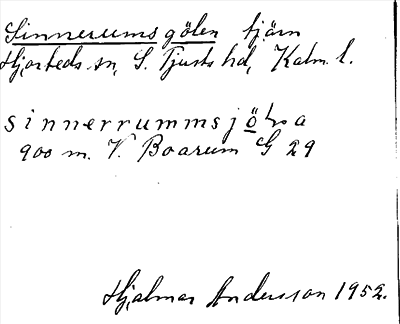 Sinnerumsgölen tjärn
Hjorteds sn, S. Tjusts hd, Kalm. l.
sinnerrummsjö
900 m. V. Boarum G 29
Hjalmar Andersson 1952.